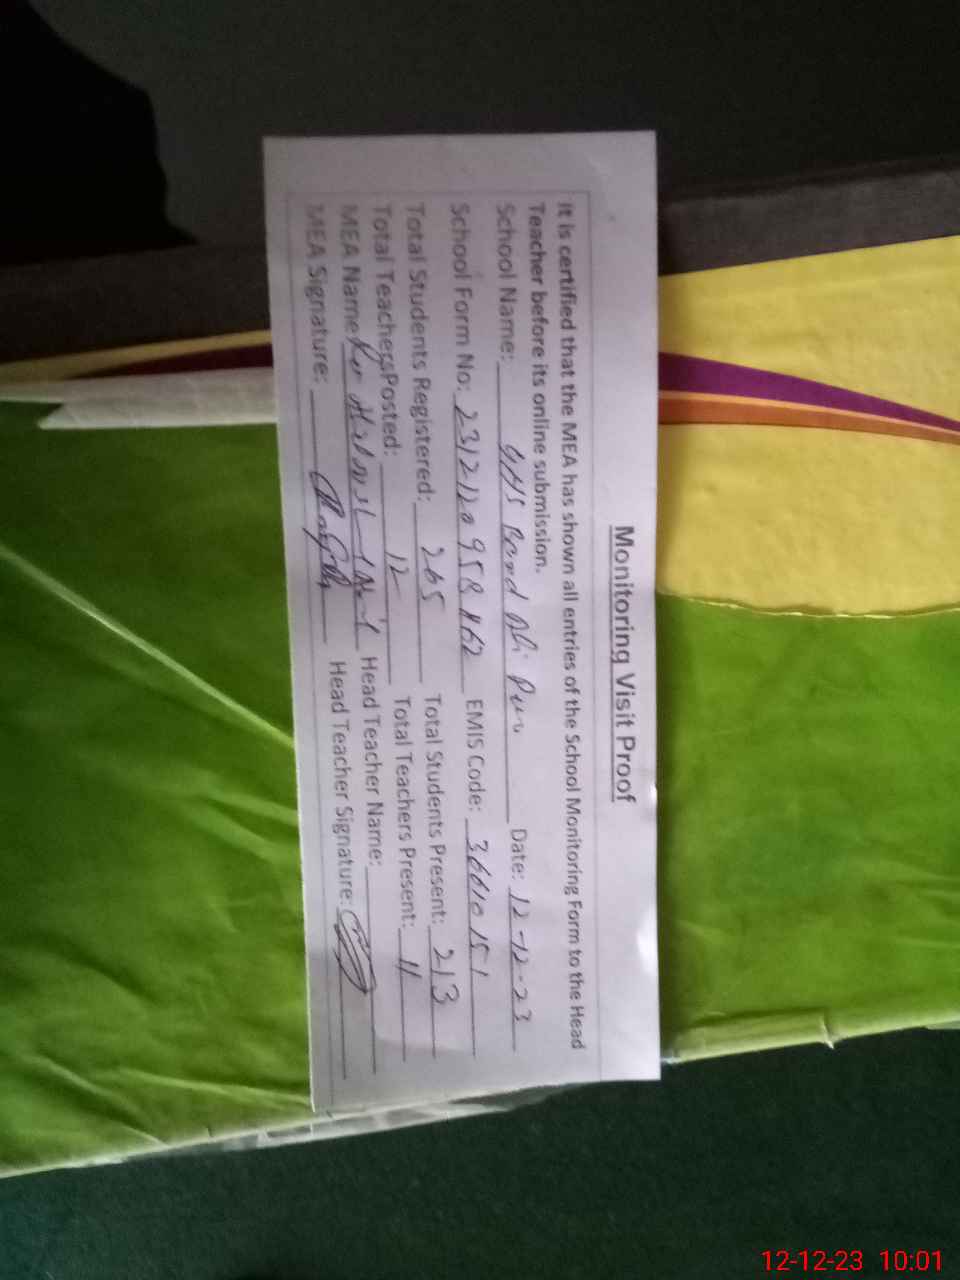 Monitoring Visit Proof
It is certified that the MEA has shown all entries of the School Monitoring Form to the Head
Teacher before its online submission.
School Name: GHS Band Ali Pur Date: 12-12-23
School Form No: EMIS Code: 36610151
Total Students Registered: 265 Total Students Present: 213
Total Teachers Posted: 12 Total Teachers Present: 11
MEA Name: Head Teacher Name:
MEA Signature: Head Teacher Signature:
12-12-23 10:01